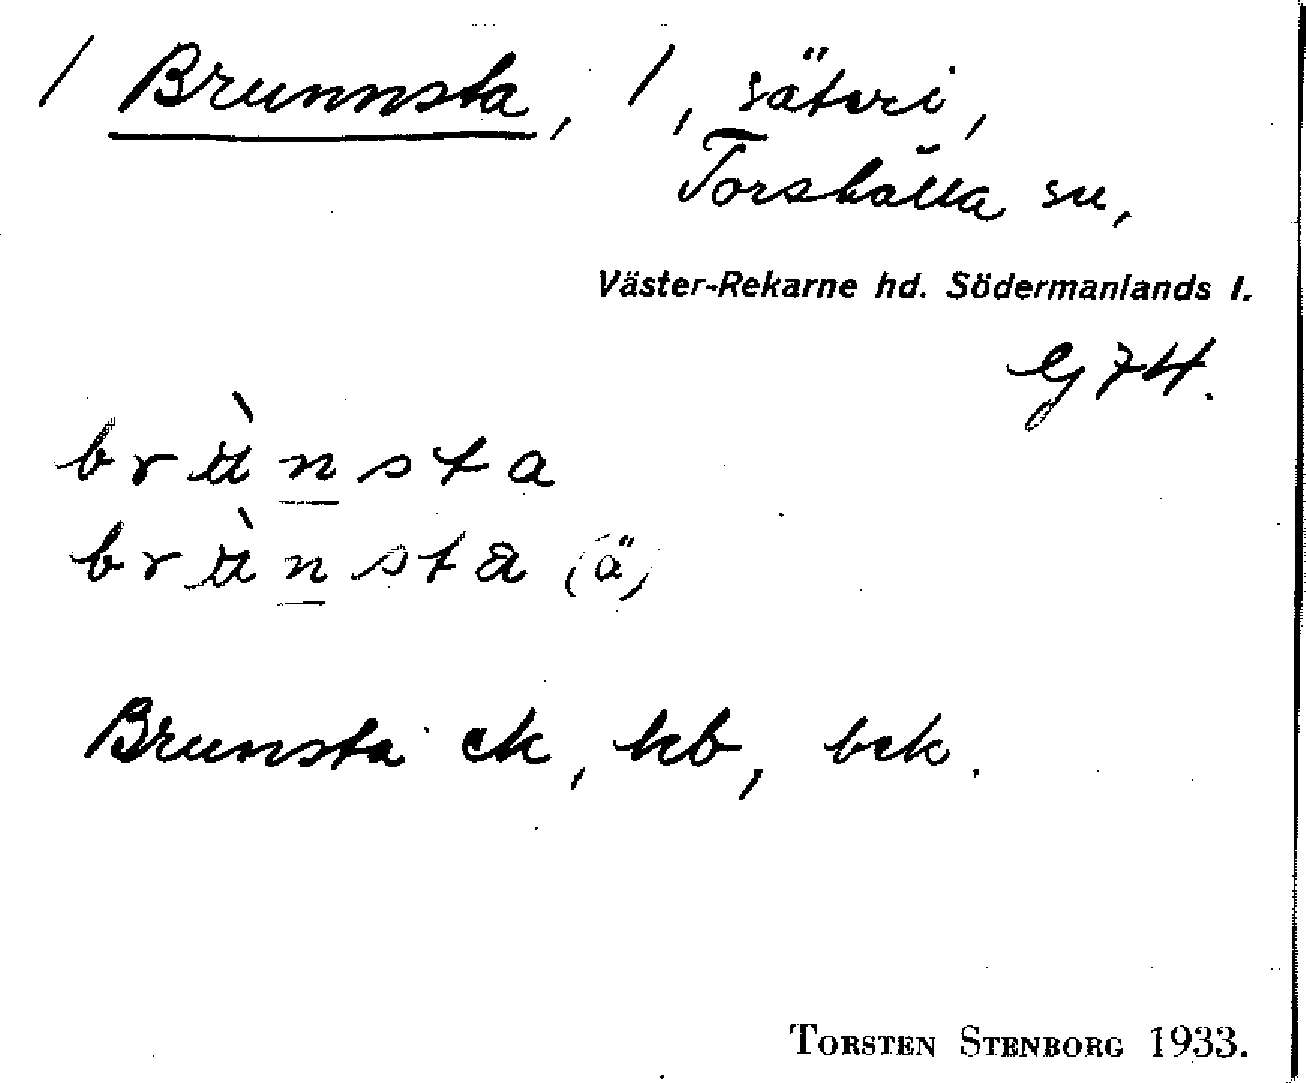 / Brunnsta, /, säteri,
Torshälla sn,
Väster-Rekarne hd. Södermanlands l.
G 74.
brùnsta
brùnsta (ä)
Brunsta ek, hb, bek.
TORSTEN STENBORG 1933.